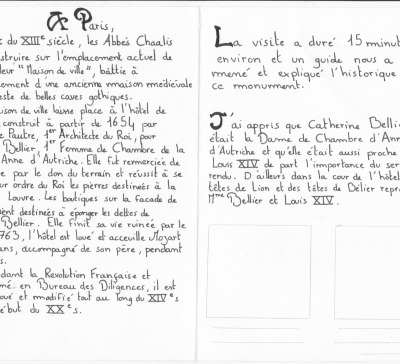 A Paris,
du XIIIe siècle, les Abbés Chaalis
struire sur l'emplacement actuel de
leur "Maison de ville", bâtie à
cement d'une ancienne maison médiévale
este de belles caves gothiques.
ison laisse place à l'hôtel de
construit à partir de 1654 par
e Pautre, 1er Architecte du Roi, pour
Bellier, 1er Femme de Chambre de la
Anne d'Autriche. Elle fut remerciée de
e par le don du terrain et réussit à se
ur ordre du Roi les pierres destinées à la
Louvre. Les boutiques sur la façade de
ient destinées à éponger les dettes de
Bellier. Elle finit sa vie ruinée par le
763, l'hôtel est loué et acceuille Mozart
ans, accompagné de son père, pendant
s.
dant la Revolution Française et
mé en Bureau des Diligences, il est
oué et modifié tout au long du XIVe s
ébut du XXe s.
La visite a duré 15 minut
environ et un guide nous a
memé et expliqué l'historique
ce monument.
J'ai appris que Catherine Bellie
était la Dame de Chambre d'Ann
d'Autriche et qu'elle était aussi proche
Louis XIV de part l'importance du ser
rendu. D'ailleurs dans la cour de l'hôtel
têtes de Lion et des têtes de Bélier repr
Mme Bellier et Louis XIV.